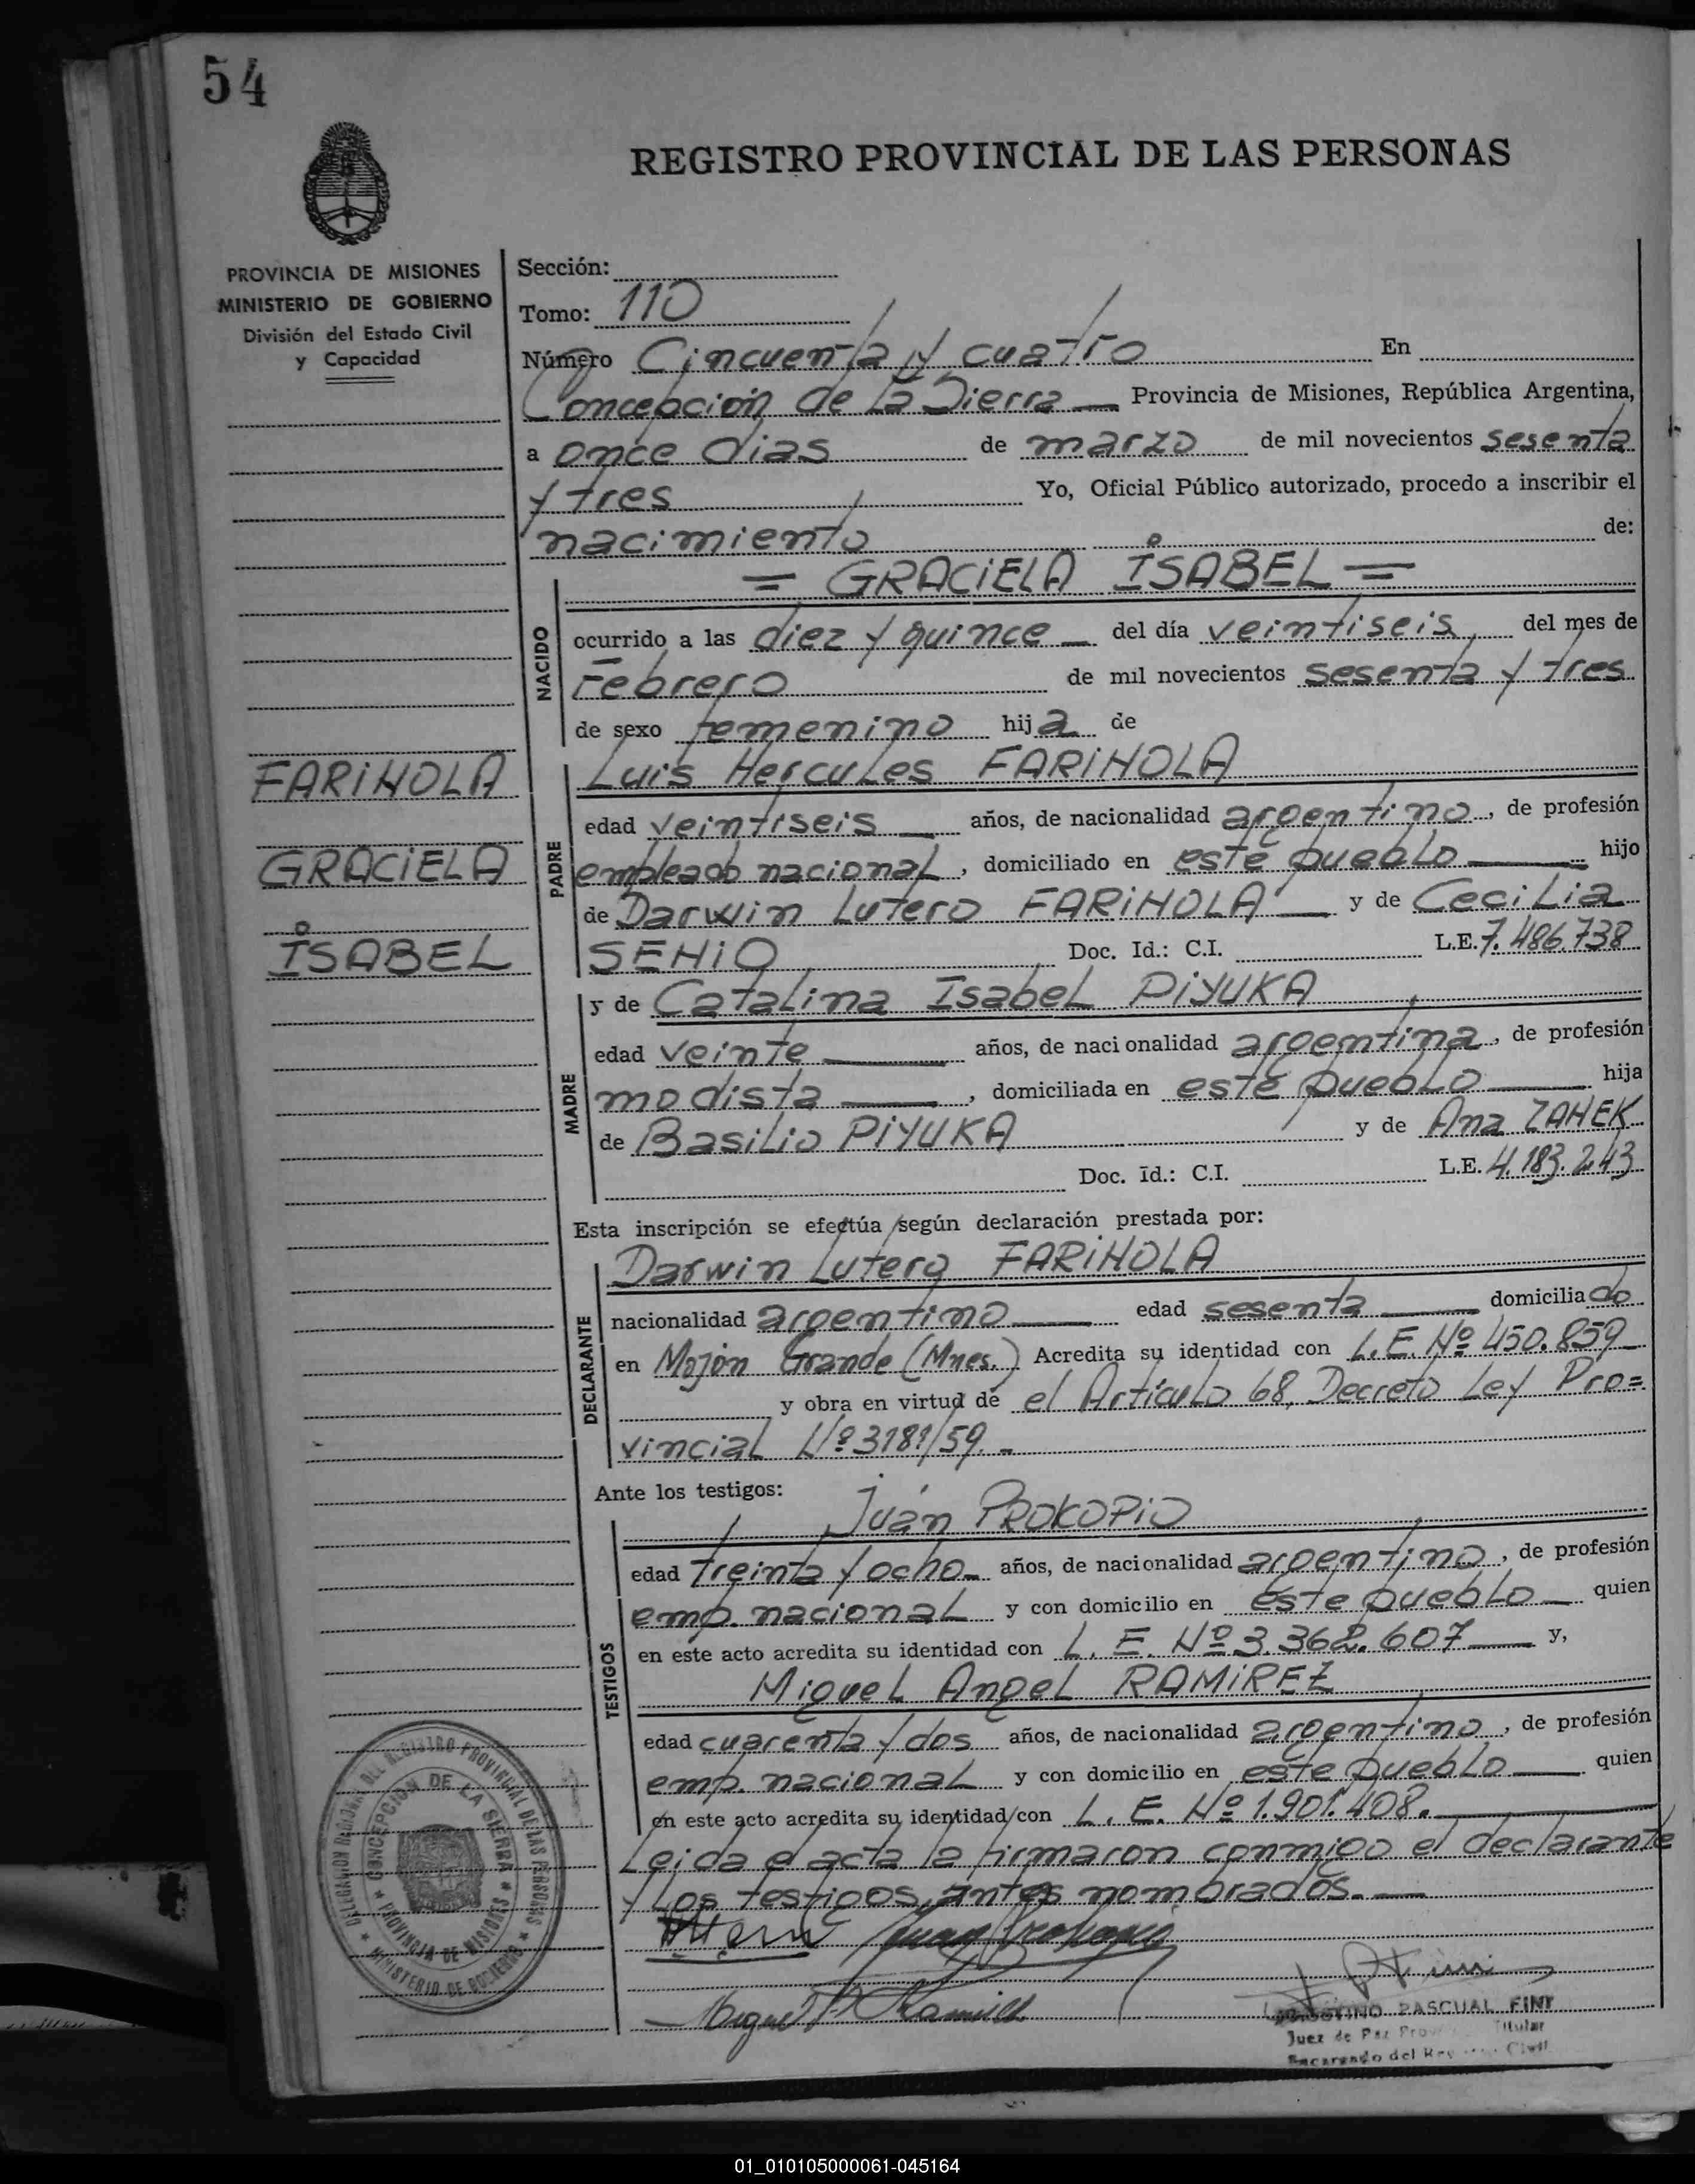 54
REGISTRO PROVINCIAL DE LAS PERSONAS
PROVINCIA DE MISIONES
MINISTERIO DE GOBIERNO
División del Estado Civil
y Capacidad
Sección:
Tomo: 110
Número Cincuenta y cuatro En
Concepción de la Sierra Provincia de Misiones, República Argentina,
a once días de marzo de mil novecientos sesenta
y tres Yo, Oficial Público autorizado, procedo a inscribir el
nacimiento de:
= GRACIELA ISABEL =
NACIDO
ocurrido a las diez y quince del día veintiseis del mes de
Febrero de mil novecientos sesenta y tres
de sexo femenino hija de
Luis Hercules FARIÑOLA
FARIÑOLA
GRACIELA
ISABEL
PADRE
edad veintiseis años, de nacionalidad argentino, de profesión
empleado nacional, domiciliado en este pueblo hijo
de Darwin Lutero FARIÑOLA y de Cecilia
SENIO Doc. Id.: C.I. L.E. 7.486.738
MADRE
y de Catalina Isabel PIYUKA
edad veinte años, de nacionalidad argentina, de profesión
modista, domiciliada en este pueblo hija
de Basilio PIYUKA y de Ana ZANEK
Doc. Id.: C.I. L.E. 4.183.243
Esta inscripción se efectúa según declaración prestada por:
DECLARANTE
Darwin Lutero FARIÑOLA
nacionalidad argentino edad sesenta domiciliado
en Mojón Grande (Mnes.) Acredita su identidad con L.E. Nº 450.859
y obra en virtud de el Artículo 68, Decreto Ley Pro=
vincial Nº 3181/59.-
Ante los testigos:
TESTIGOS
Juan PROKOPIO
edad treinta y ocho años, de nacionalidad argentino, de profesión
emp. nacional y con domicilio en este pueblo quien
en este acto acredita su identidad con L. E. Nº 3.362.607 y,
Miguel Angel RAMIREZ
edad cuarenta y dos años, de nacionalidad argentino, de profesión
emp. nacional y con domicilio en este pueblo quien
en este acto acredita su identidad con L. E. Nº 1.901.408.
Leida el acta la firmaron conmigo el declarante
y los testigos antes nombrados.
DELEGACION DEL REGISTRO PROVINCIAL DE LAS PERSONAS
CONCEPCION DE LA SIERRA
PROVINCIA DE MISIONES
MINISTERIO DE GOBIERNO
Miguel A Ramirez
PASCUAL FINI
Juez de Paz Titular
Encargado del Civil
01_010105000061-045164